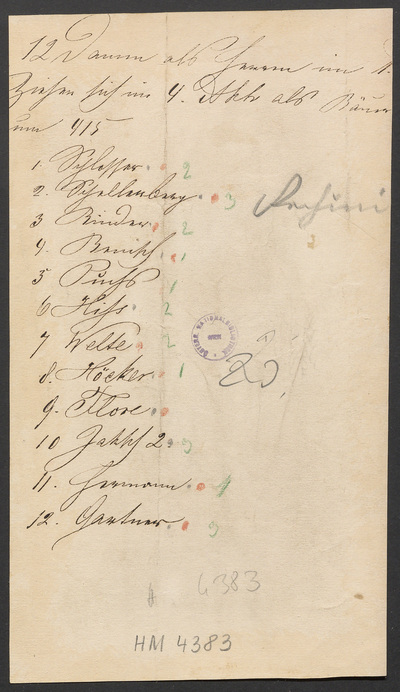 12 Damen als Herren im
Ziehen sich im 4. Akt als
um 415
1. Schlosser 2
2 Schellenberg 3
3 Binder 2
4. Benisch 1
5 Fuchs 1
6 Hiss 2
7 Welte 2
8. Höcker 1
9. Flore
10 Jaksch 2. 3
11. Hermann 1
12. Gartner 3
4383
HM 4383